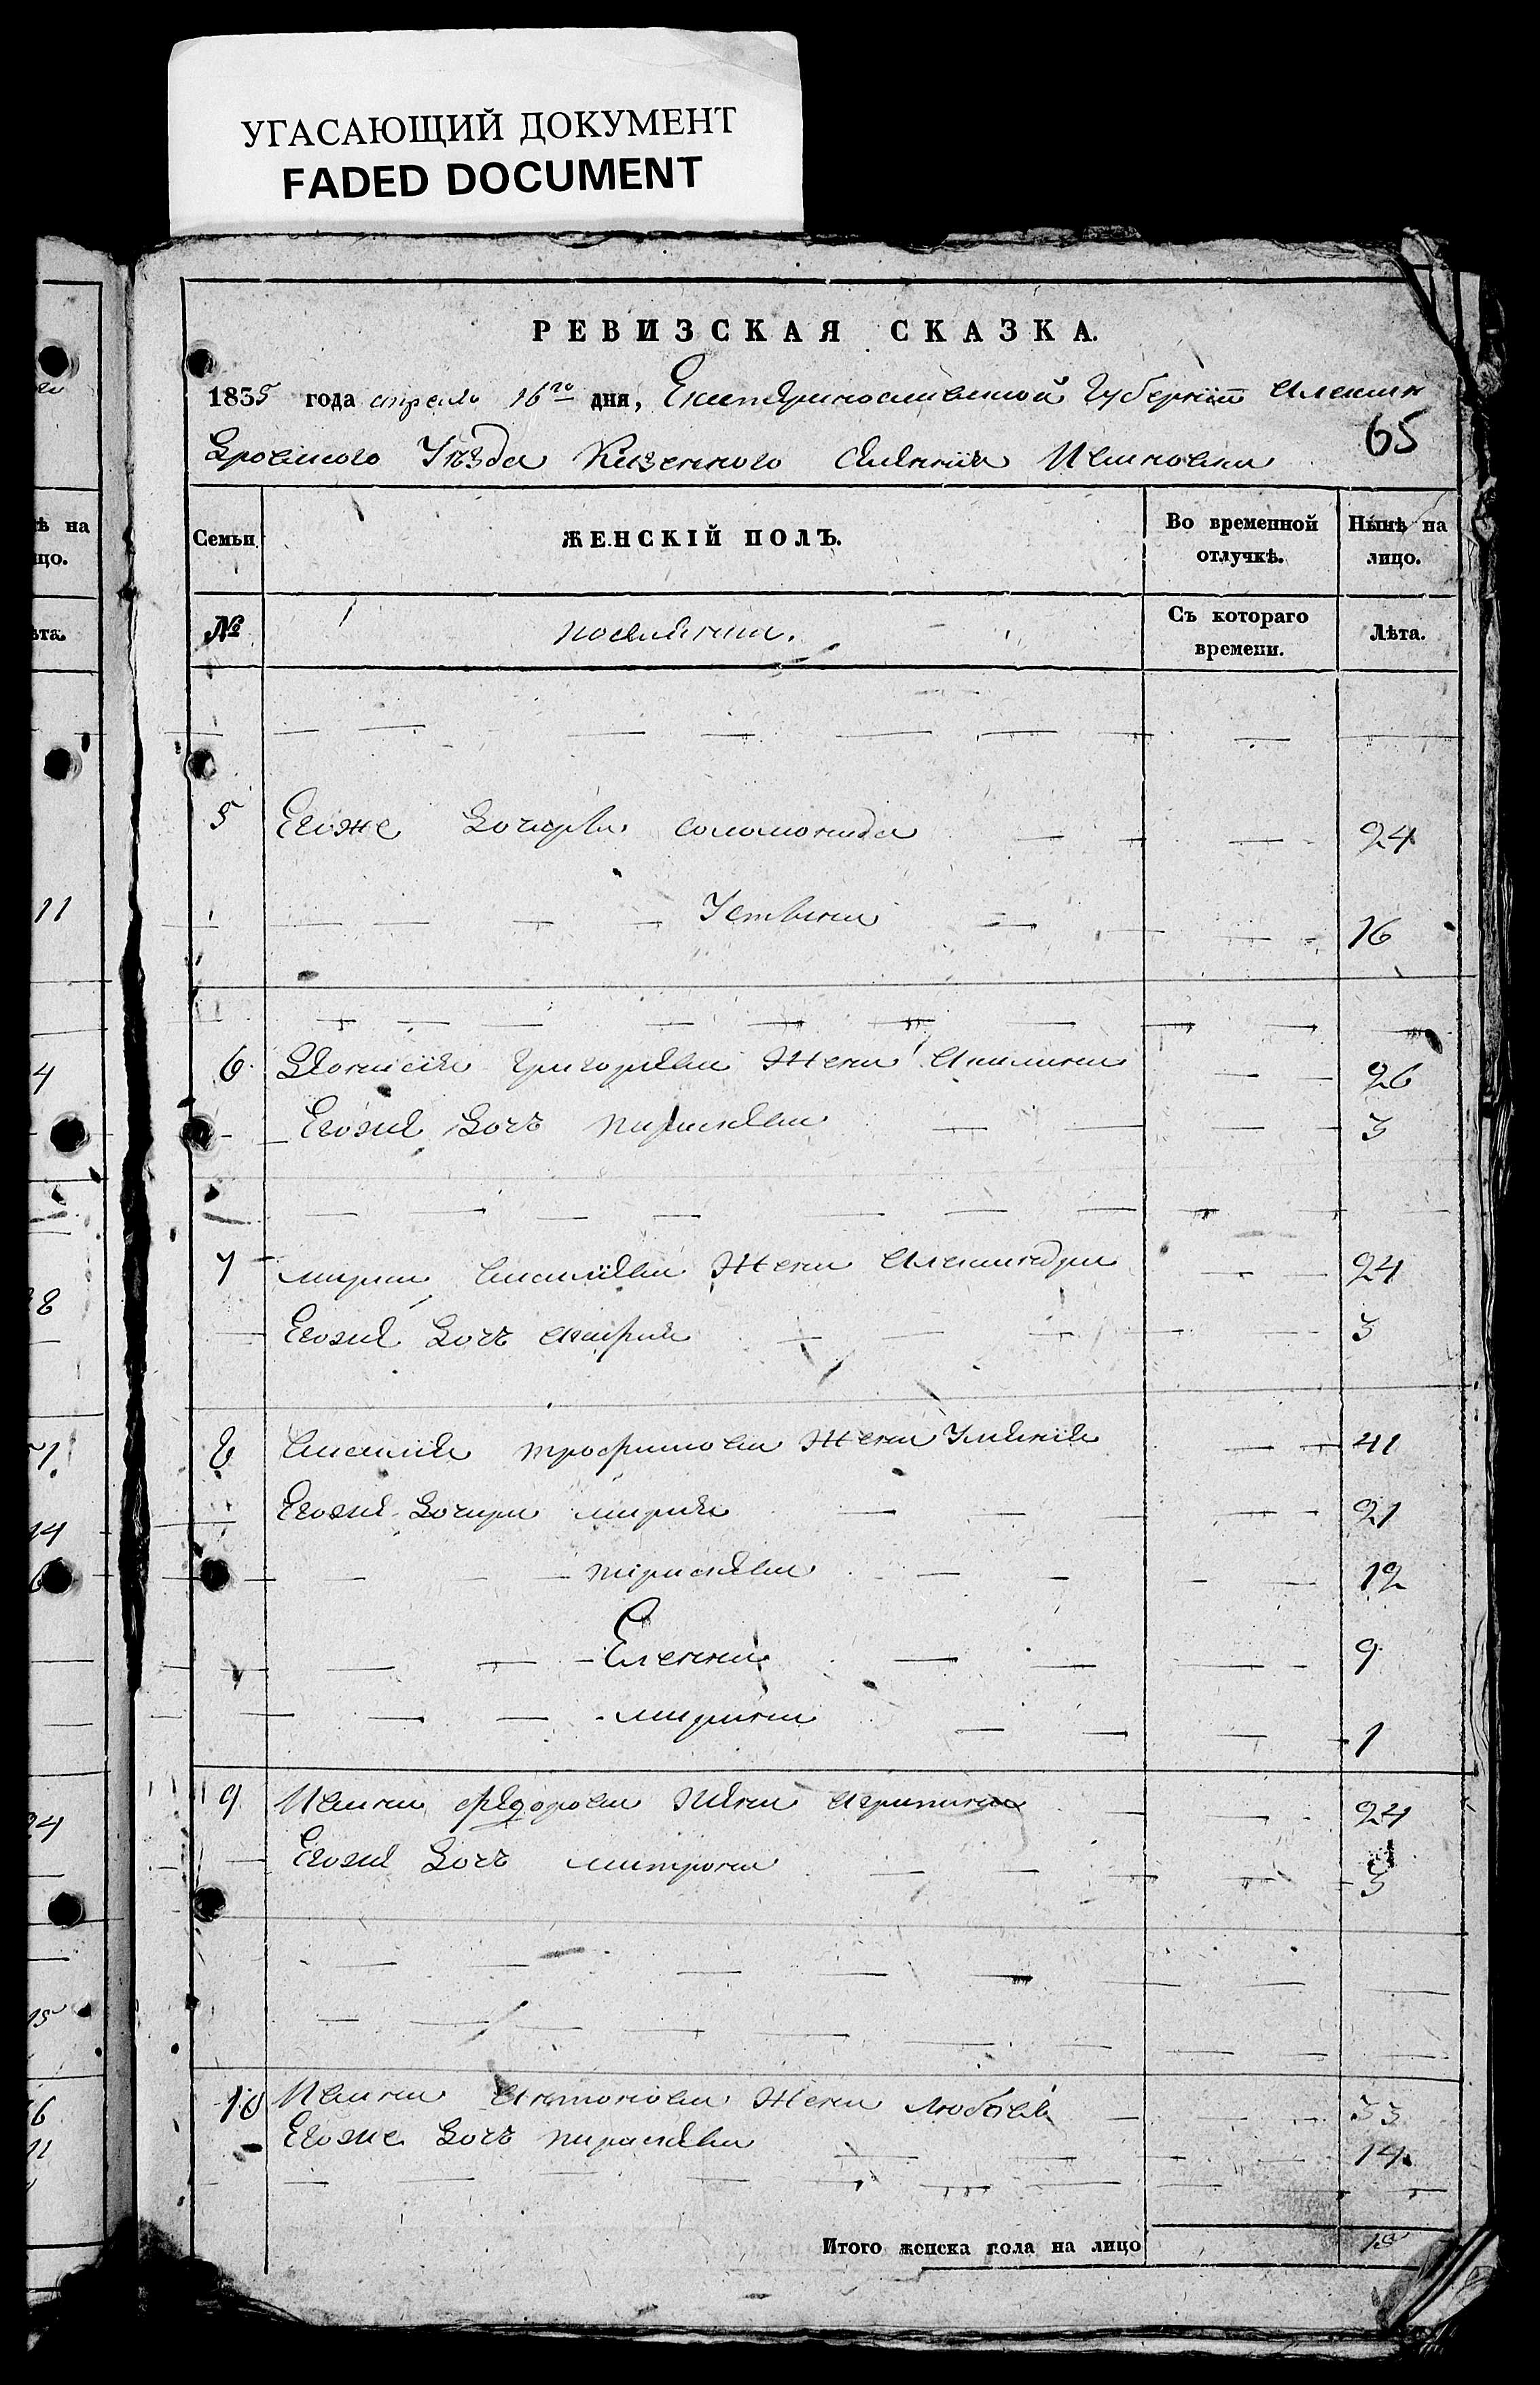 УГАСАЮЩИЙ ДОКУМЕНТ
FADED DOCUMENT
РЕВИЗСКАЯ СКАЗКА.
1835 года апреля 16го дня, Екатеринославской Губернiи Алексан
дровского Уѣзда Казенного Селенiя Ивановки
65
Семьи
ЖЕНСКIЙ ПОЛЪ.
Во временной отлучкѣ.
Нынѣ на лицо.
№
поселяне.
Съ котораго времени.
Лѣта.
5 Егоже Дочери Соломонида 24
Устинья 16
6 Денисiя Григорьева Жена Акилина 26
Егоже Дочь параскева 3
7 марка Василiева Жена Александра 24
Егоже Дочь 3
8 Василiя трофимова Жена Улiянiя 41
Егоже Дочери мария 21
параскева 12
Еленна 9
марина 1
9 Ивана федорова Жена Агрипина 24
Егоже Дочь матрона 3
10 Ивана Антонова Жена любовь 33
Егоже Дочь параскева 14
Итого женска пола на лицо 15
11
4
14
24
15
6